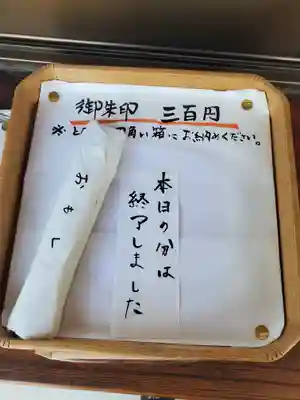 御朱印 三百円
※ど 角い箱にお納めください。
本日の分は
終了しました
おもし